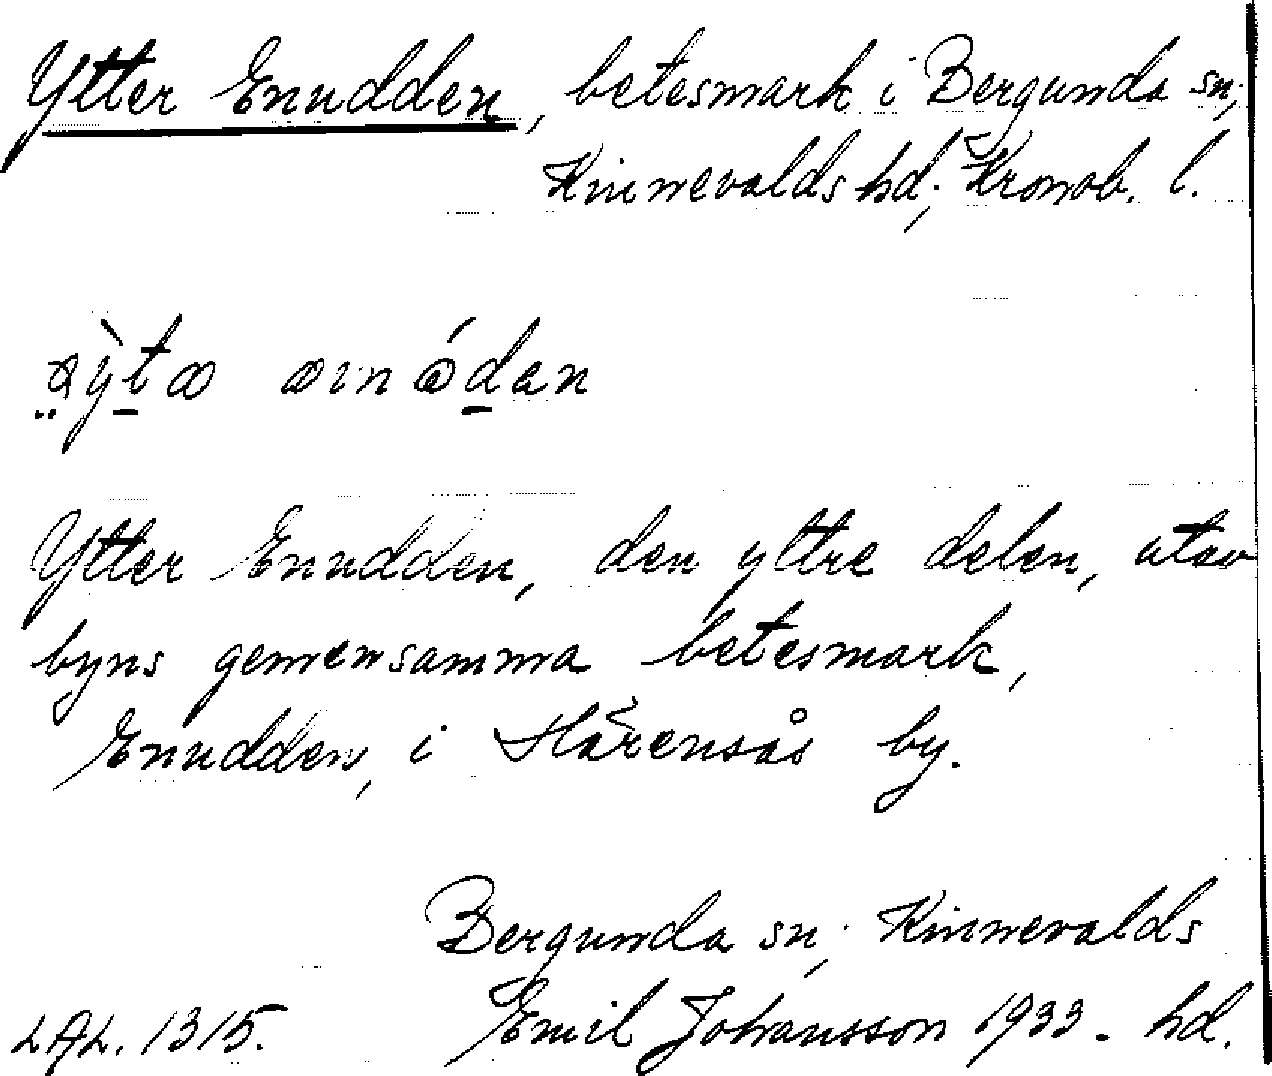 Ytter Enudden, betesmark i Bergunda sn;
Kinnevalds hd; Kronob. l.
Ytter Enudden, den yttre delen, utav
byns gemensamma betesmark,
Enudden, i Hårensås by.
Bergunda sn; Kinnevalds
LAL. 1315. Emil Johansson 1933. hd.